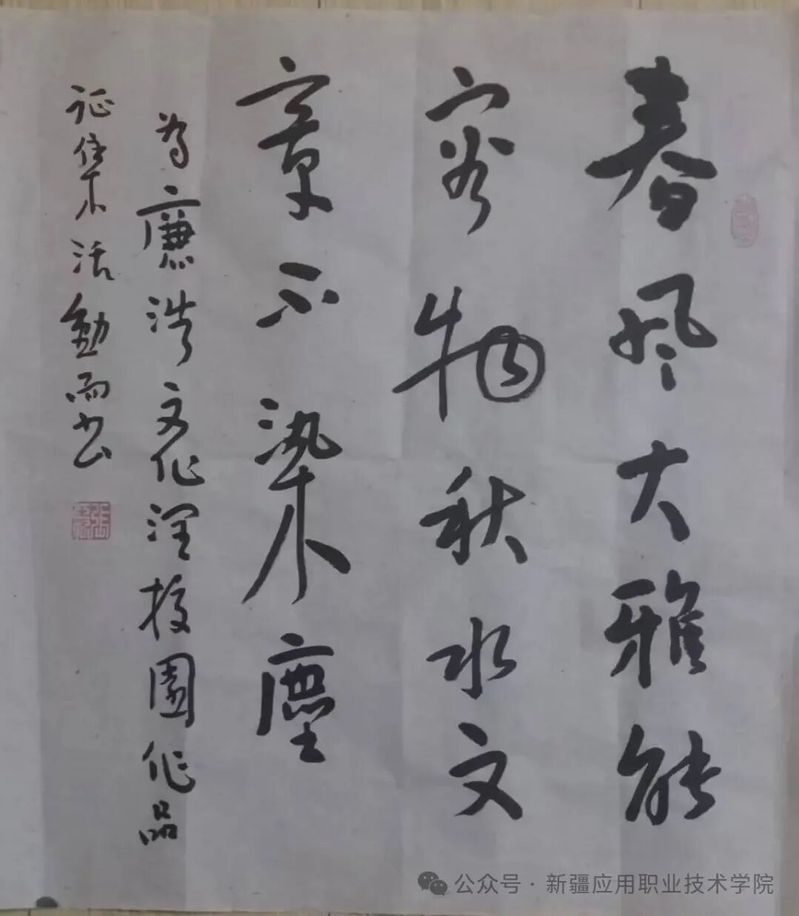 春风大雅能
容物秋水文
章不染塵
为廉洁文化润校園作品
征集活動而书
公众号·新疆应用职业技术学院